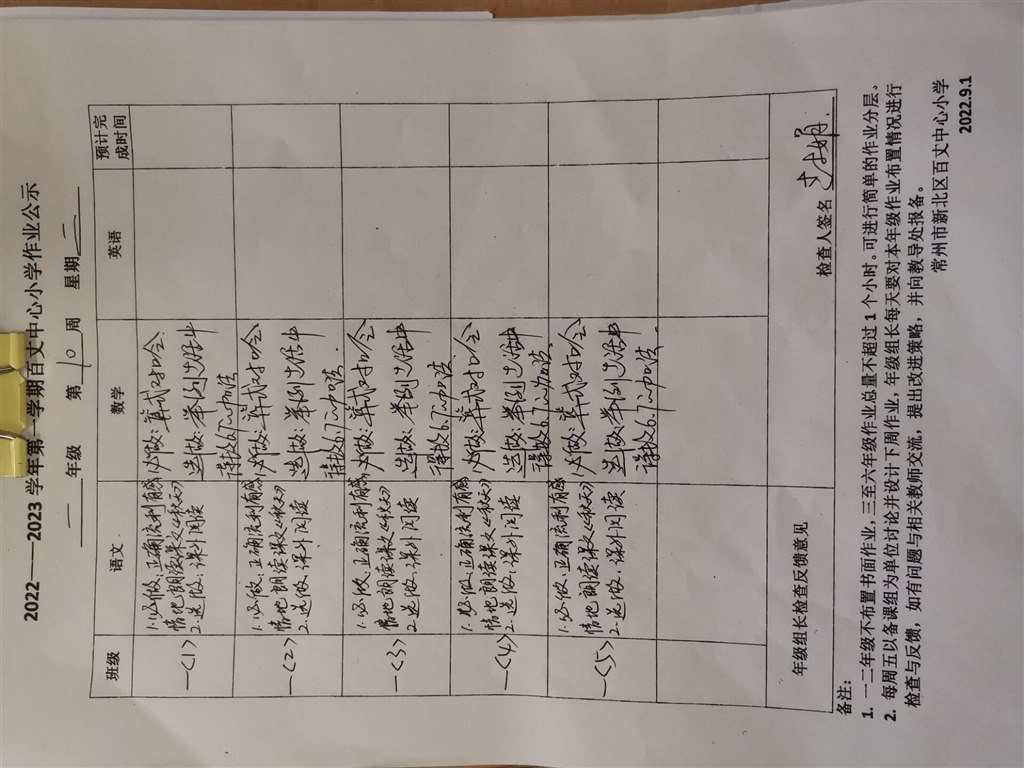 2022——2023学年第一学期百丈中心小学作业公示
一 年级 第 10 周 星期 三
班级 语文 数学 英语 预计完成时间
一〈1〉
1.必做、正确流利有感
情地朗读课文《秋天》
2.选做、课外阅读
必做：算式对口令
选做：举例生活中
一〈2〉
1.必做、正确流利有感
情地朗读课文《秋天》
2.选做、课外阅读
必做：算式对口令
选做：举例生活中
一〈3〉
1.必做、正确流利有感
情地朗读课文《秋天》
2.选做、课外阅读
必做：算式对口令
选做：举例生活中
一〈4〉
1.必做、正确流利有感
情地朗读课文《秋天》
2.选做、课外阅读
必做：算式对口令
选做：举例生活中
一〈5〉
1.必做、正确流利有感
情地朗读课文《秋天》
2.选做、课外阅读
必做：算式对口令
选做：举例生活中
年级组长检查反馈意见
检查人签名
备注：
1. 一二年级不布置书面作业，三至六年级作业总量不超过 1 个小时。可进行简单的作业分层。
2. 每周五以备课组为单位讨论并设计下周作业，年级组长每天要对本年级作业布置情况进行
检查与反馈，如有问题与相关教师交流，提出改进策略，并向教导处报备。
常州市新北区百丈中心小学
2022.9.1